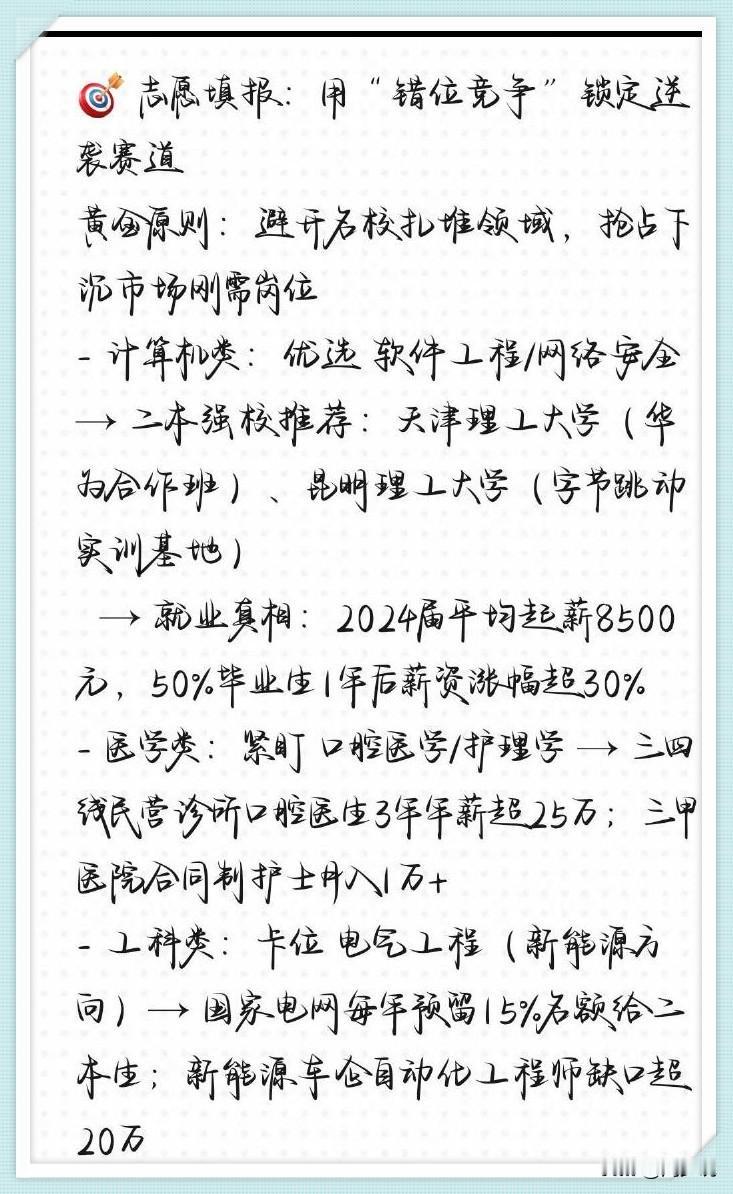 🎯 志愿填报：用“错位竞争”锁定逆
袭赛道
黄金原则：避开名校扎堆领域，抢占下
沉市场刚需岗位
- 计算机类：优选 软件工程/网络安全
→ 二本强校推荐：天津理工大学（华
为合作班）、昆明理工大学（字节跳动
实训基地）
→ 就业真相：2024届平均起薪8500
元，50%毕业生1年后薪资涨幅超30%
- 医学类：紧盯 口腔医学/护理学 → 三四
线民营诊所口腔医生3年年薪超25万；三甲
医院合同制护士月入1万+
- 工科类：卡位 电气工程（新能源方
向）→ 国家电网每年预留15%名额给二
本生；新能源车企自动化工程师缺口超
20万